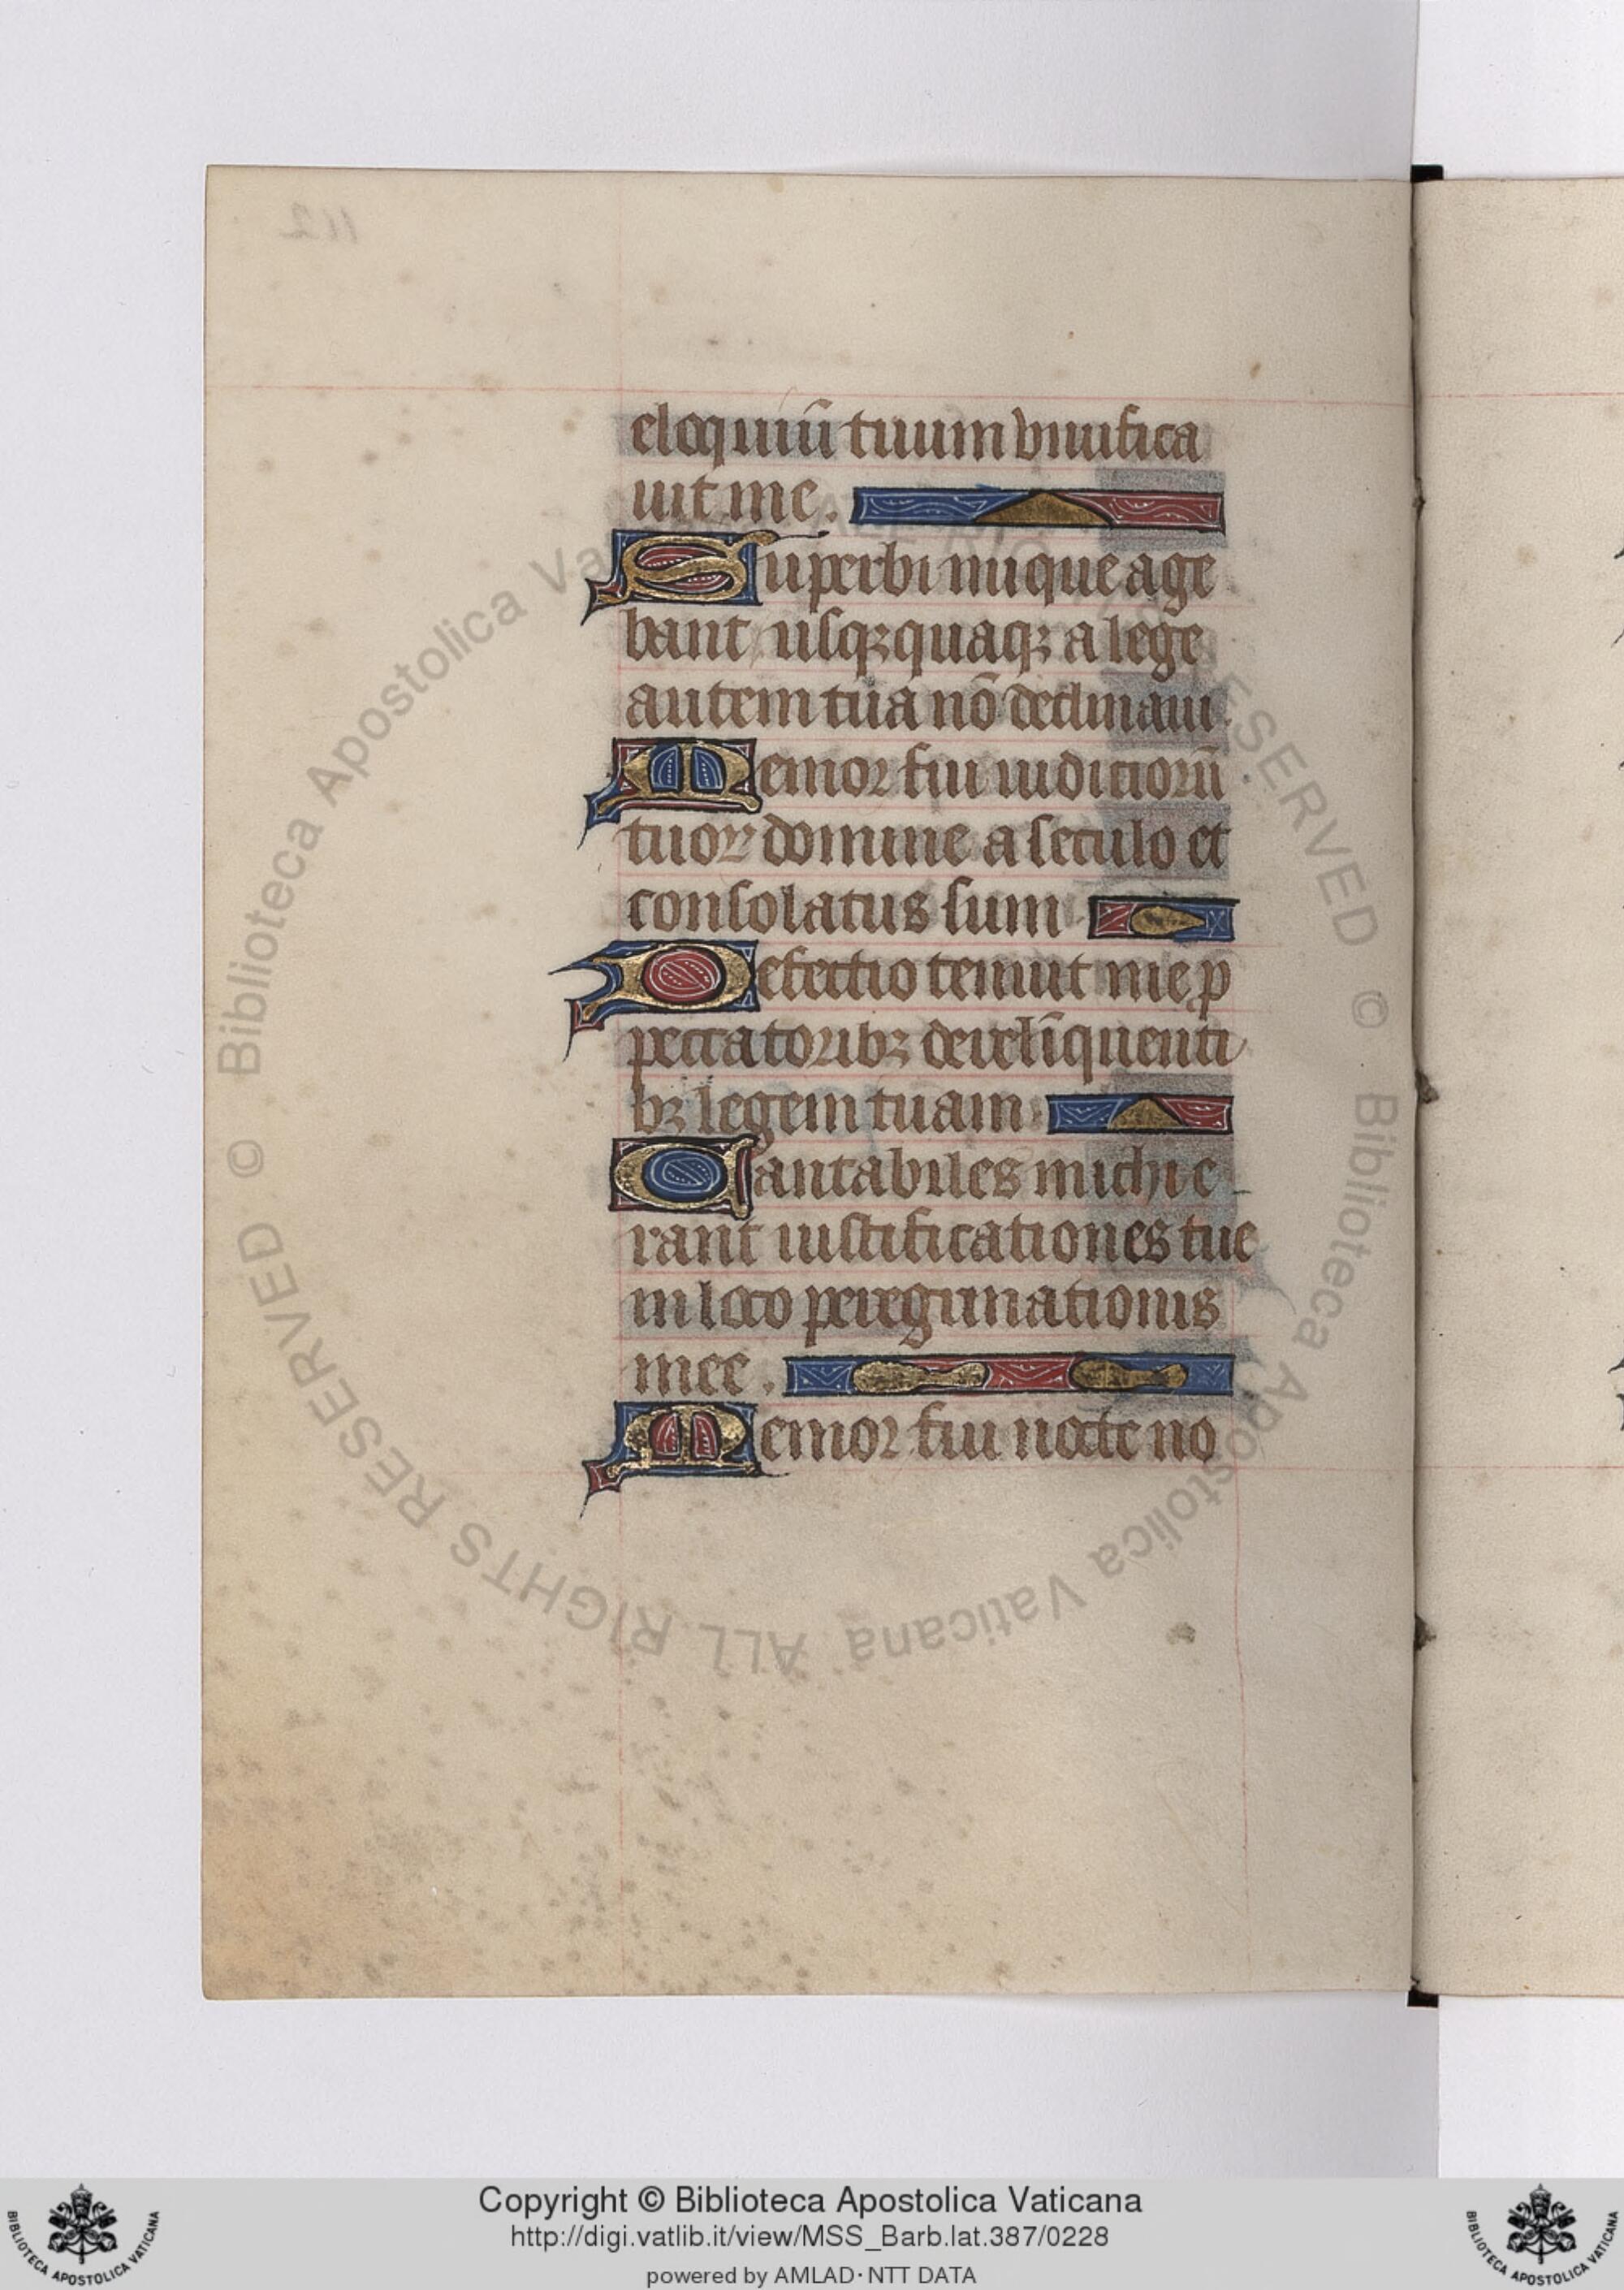 eloquiū tuum viuifica
uit me.
Superbi inique age
bant usqꝫquaqꝫ a lege
autem tua nō declinaui.
Memor fui iudiciorū
tuoꝝ domine a seculo et
consolatus sum.
Defectio tenuit me p
peccatoribꝫ derelīquenti
bꝫ legem tuam.
Cantabiles michi e-
rant iustificationes tue
in loco peregrinationis
mee.
Memor fui nocte no
112
© Biblioteca Apostolica Vaticana ALL RIGHTS RESERVED © Biblioteca Apostolica Vaticana ALL RIGHTS RESERVED
Copyright © Biblioteca Apostolica Vaticana
http://digi.vatlib.it/view/MSS_Barb.lat.387/0228
powered by AMLAD·NTT DATA
BIBLIOTECA APOSTOLICA VATICANA
BIBLIOTECA APOSTOLICA VATICANA